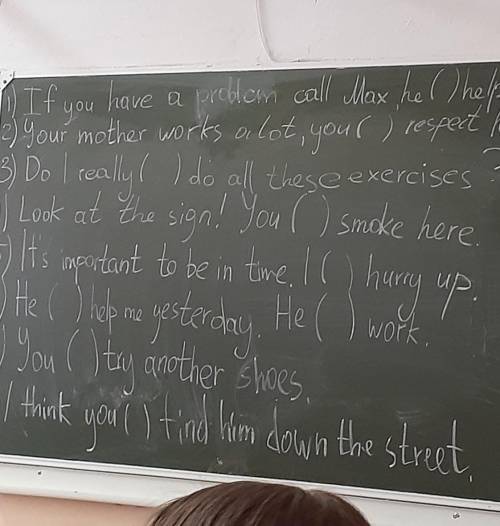 1) If you have a problem call Max, he ( ) help
2) Your mother works a lot, you ( ) respect
3) Do I really ( ) do all these exercises ?
) Look at the sign! You ( ) smoke here.
) It's important to be in time. I ( ) hurry up.
) He ( ) help me yesterday. He ( ) work.
) You ( ) try another shoes.
I think you ( ) find him down the street.